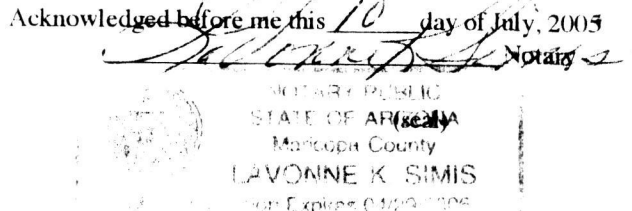 Acknowledged before me this 10 day of July, 2005
LaVonne K Simis Notary
NOTARY PUBLIC
STATE OF ARIZONA (seal)
Maricopa County
LAVONNE K SIMIS
Expires